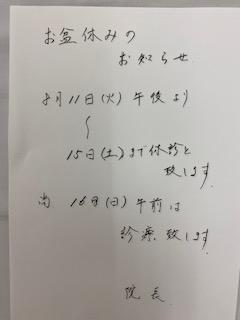 お盆休みの
お知らせ
8月11日(火)午後より
〜
15日(土)まで休診と
致します
尚 16日(日)午前は
診療致します
院長